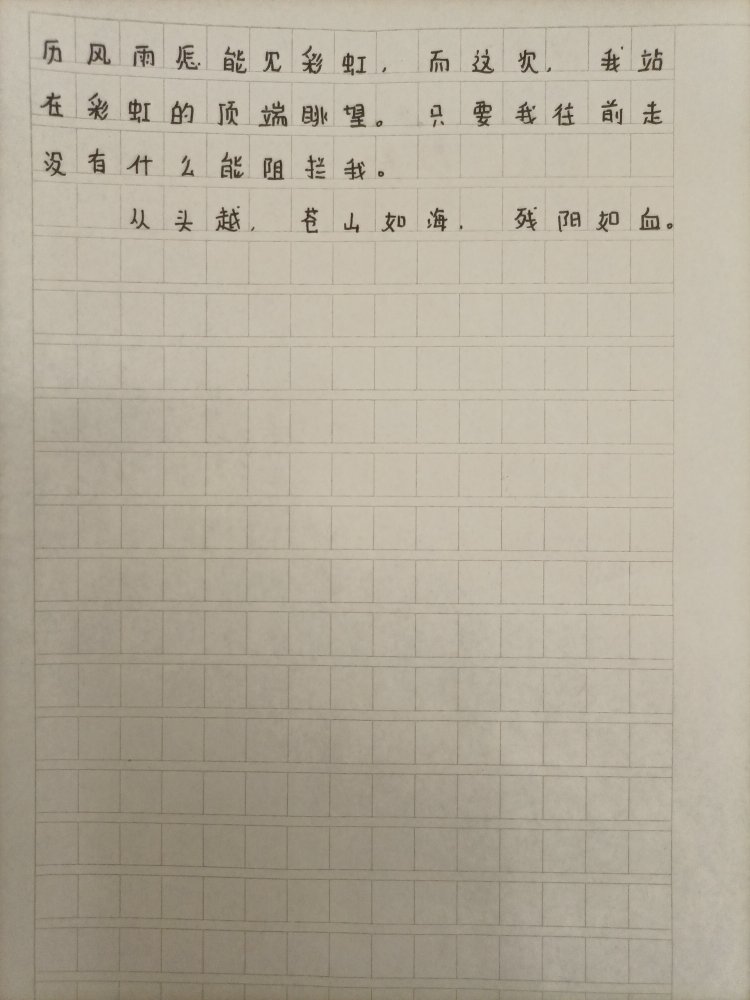 历风雨怎能见彩虹，而这次，我站
在彩虹的顶端眺望。只要我往前走
没有什么能阻拦我。
从头越，苍山如海，残阳如血。